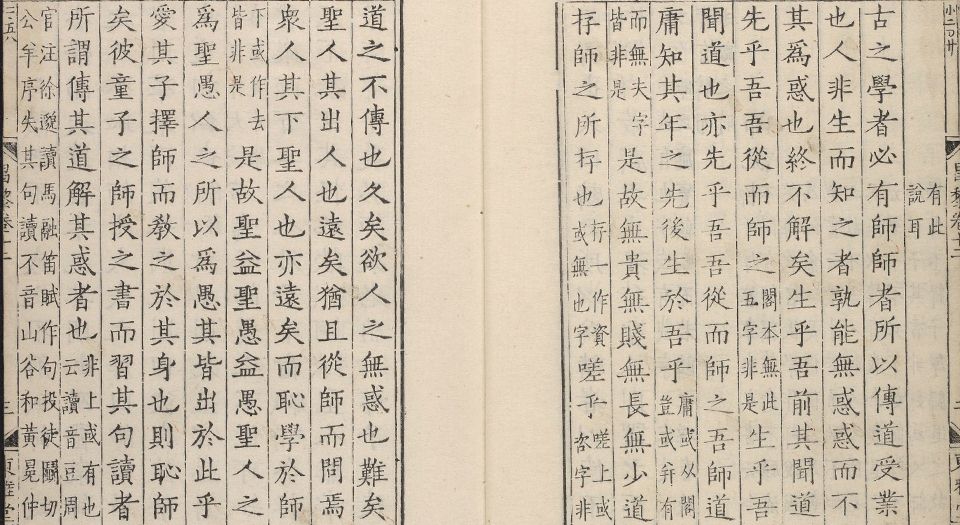 有此
說耳
古之學者必有師師者所以傳道受業
也人非生而知之者孰能無惑惑而不
其爲惑也終不解矣生乎吾前其聞道
先乎吾吾從而師之閣本無此五字非是生乎吾
聞道也亦先乎吾吾從而師之吾師道
庸知其年之先後生於吾乎庸或从閣豈或幷有
而無夫字皆非是是故無貴無賤無長無少道
存師之所存也存一作資或無也字嗟乎嗟上或咨字非
道之不傳也久矣欲人之無惑也難矣
聖人其出人也遠矣猶且從師而問焉
衆人其下聖人也亦遠矣而恥學於師
下或作去皆非是是故聖益聖愚益愚聖人之
爲聖愚人之所以爲愚其皆出於此乎
愛其子擇師而教之於其身也則恥師
矣彼童子之師授之書而習其句讀者
所謂傳其道解其惑者也非上或有也云讀音豆周
官注徐邈讀馬融笛賦作句投徒鬭切
公羊序失其句讀不音山谷和黃冕仲